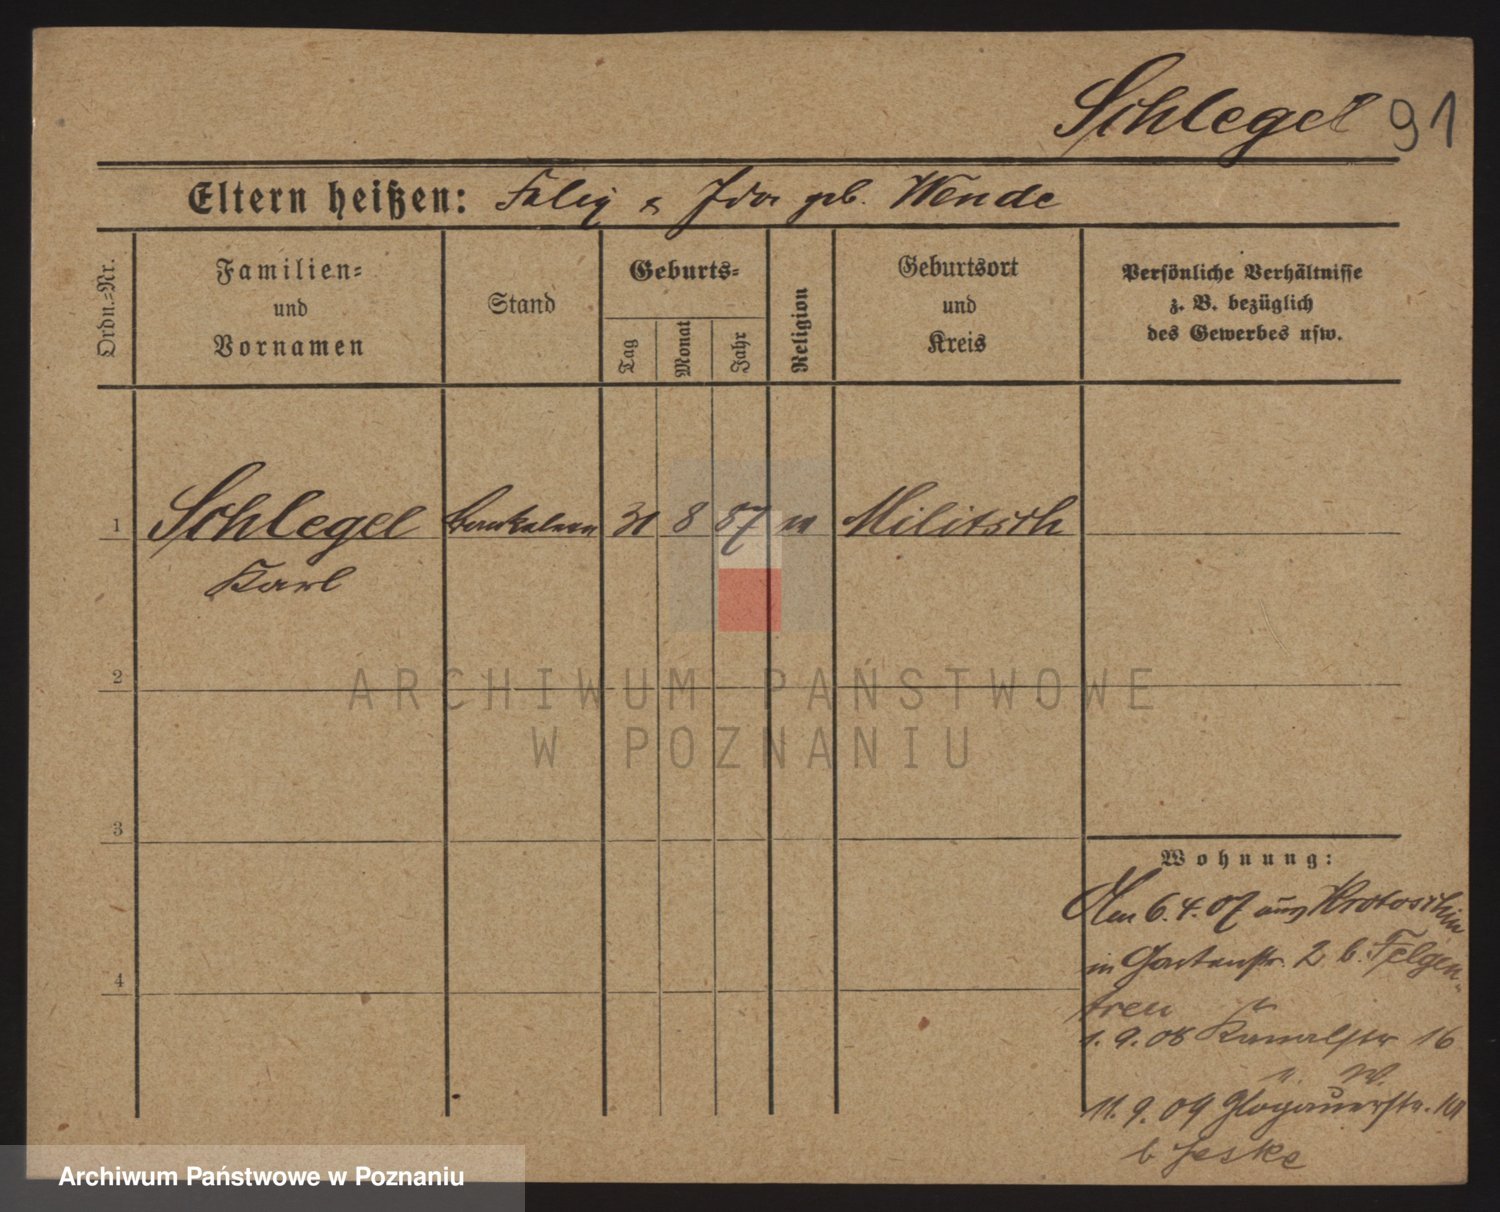 Schlegel 91
Eltern heißen: Felix & Ida geb. Wende
Ordn.=Nr.
Familien=
und
Vornamen
Stand
Geburts=
Tag
Monat
Jahr
Religion
Geburtsort
und
Kreis
Persönliche Verhältnisse
z. B. bezüglich
des Gewerbes usw.
1 Schlegel 31 8 87 Militsch
Karl
2
3
4
Wohnung:
Am 6.4.07 aus Krotoschin
in Gartenstr. 2 b. Felgen-
treu
1.9.08 Kanalstr 16
11.9.09 Glogauerstr.
b Jeske
ARCHIWUM PAŃSTWOWE
W POZNANIU
Archiwum Państwowe w Poznaniu